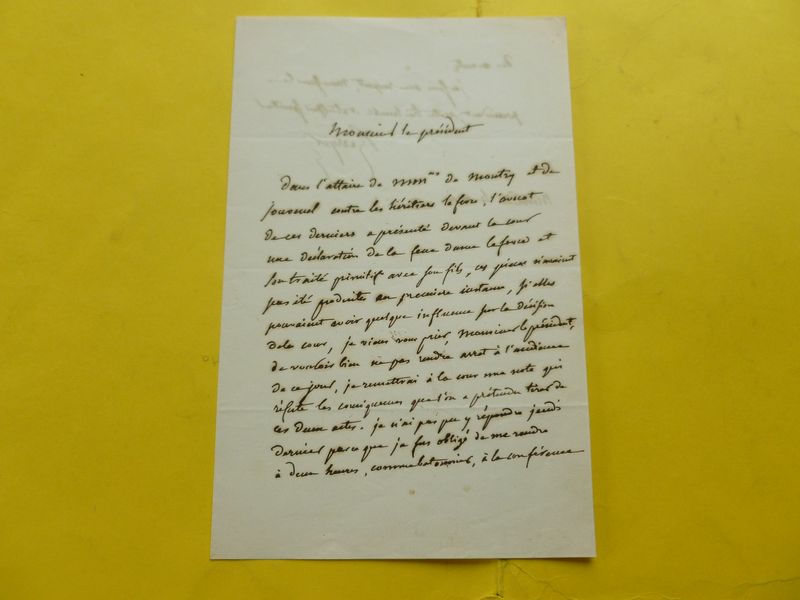 Monsieur le président
Dans l'affaire de MM.rs de Montry et de
Jouvenel contre les héritiers la force, l'avocat
de ces derniers a présenté devant la cour
une déclaration de la feue dame la force et
son traité primitif avec son fils, ces pièces n'avaient
pas été produites en première instance, si elles
pouvaient avoir quelque influence sur la décision
de la cour, je viens vous prier Monsieur le président,
de vouloir bien ne pas rendre arret à l'audience
de ce jour, je remettrai à la cour une note qui
réfute les conséquences que l'on a prétendu tirer de
ces deux actes. je n'ai pas pu y répondre jeudi
dernier parce que je fus obligé de me rendre
à deux heures, comme batonnier, à la conférence